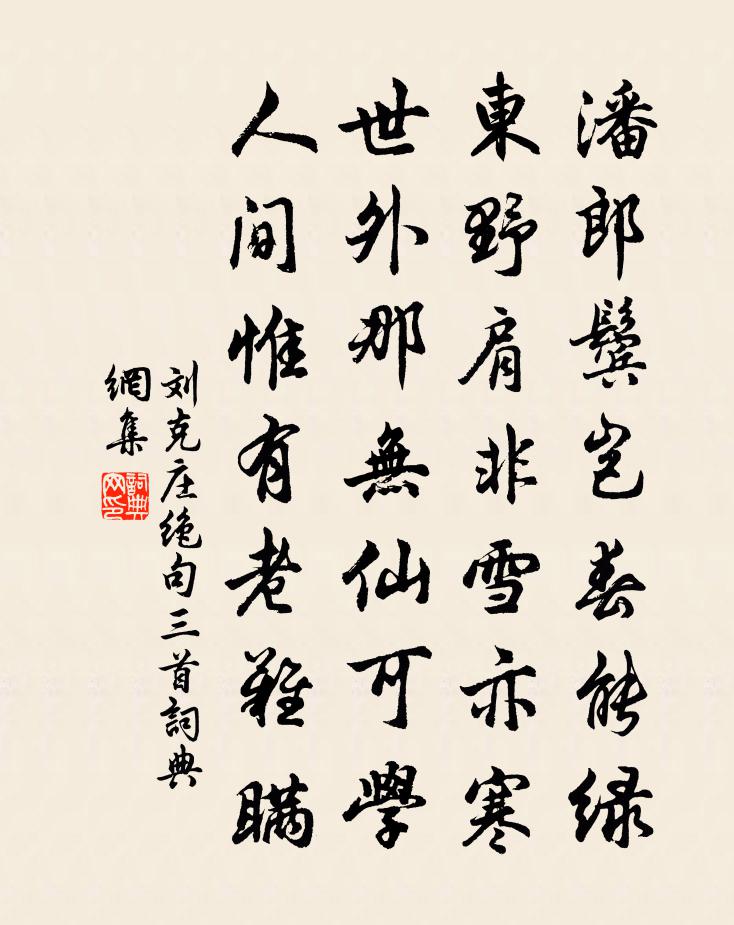 潘郎鬓岂春能绿
東野肩非雪亦寒
世外那無仙可學
人间惟有老難瞞
刘克庄绝句三首詞典
網集
詞典
网印